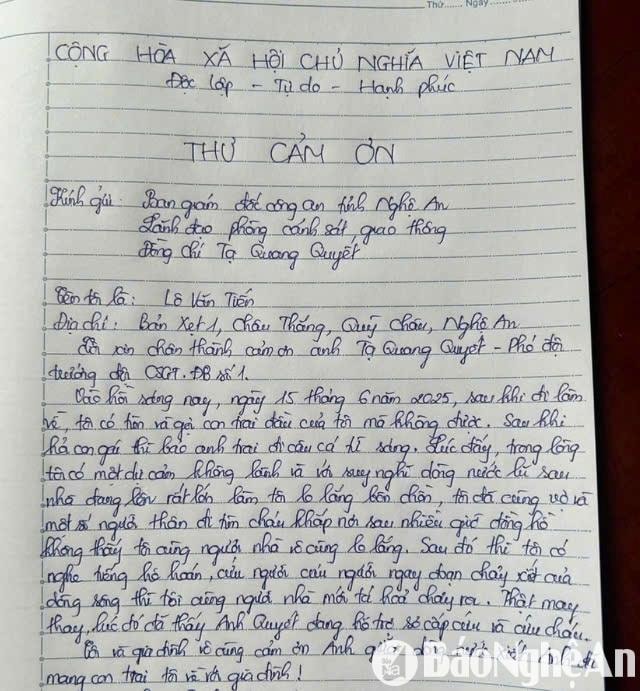 Thứ...... Ngày......
CỘNG HÒA XÃ HỘI CHỦ NGHĨA VIỆT NAM
Độc lập - Tự do - Hạnh phúc
THƯ CẢM ƠN
Kính gửi: Ban giám đốc công an tỉnh Nghệ An
Lãnh đạo phòng cảnh sát giao thông
Đồng chí Tạ Quang Quyết
Tên tôi là: Lô Văn Tiến
Địa chỉ: Bản Xẹt 1, Châu Thắng, Quỳ Châu, Nghệ An
Tôi xin chân thành cảm ơn anh Tạ Quang Quyết - Phó đội
trưởng đội CSGT.ĐB số 1.
Vào hồi sáng nay, ngày 15 tháng 6 năm 2025, sau khi đi làm
về, tôi có tìm và gọi con trai đầu của tôi mà không được. Sau khi
hỏi con gái thì bảo anh trai đi câu cá từ sáng. Lúc đấy, trong lòng
tôi có một dự cảm không lành và với suy nghĩ dòng nước lũ sau
nhà đang lên rất lớn làm tôi lo lắng bồn chồn, tôi đã cùng vợ và
một số người thân đi tìm cháu khắp nơi sau nhiều giờ đồng hồ
không thấy tôi cùng người nhà vô cùng lo lắng. Sau đó thì tôi có
nghe tiếng hô hoán, cứu người cứu người ngay đoạn chảy xiết của
dòng sông thì tôi cùng người nhà mới tá hoả chạy ra. Thật may
thay, lúc đó đã thấy Anh Quyết đang hỗ trợ sơ cấp cứu và cứu cháu.
Tôi và gia đình vô cùng cảm ơn Anh giữa dòng nước xiết
mang con trai tôi về với gia đình!
BáoNghệAn